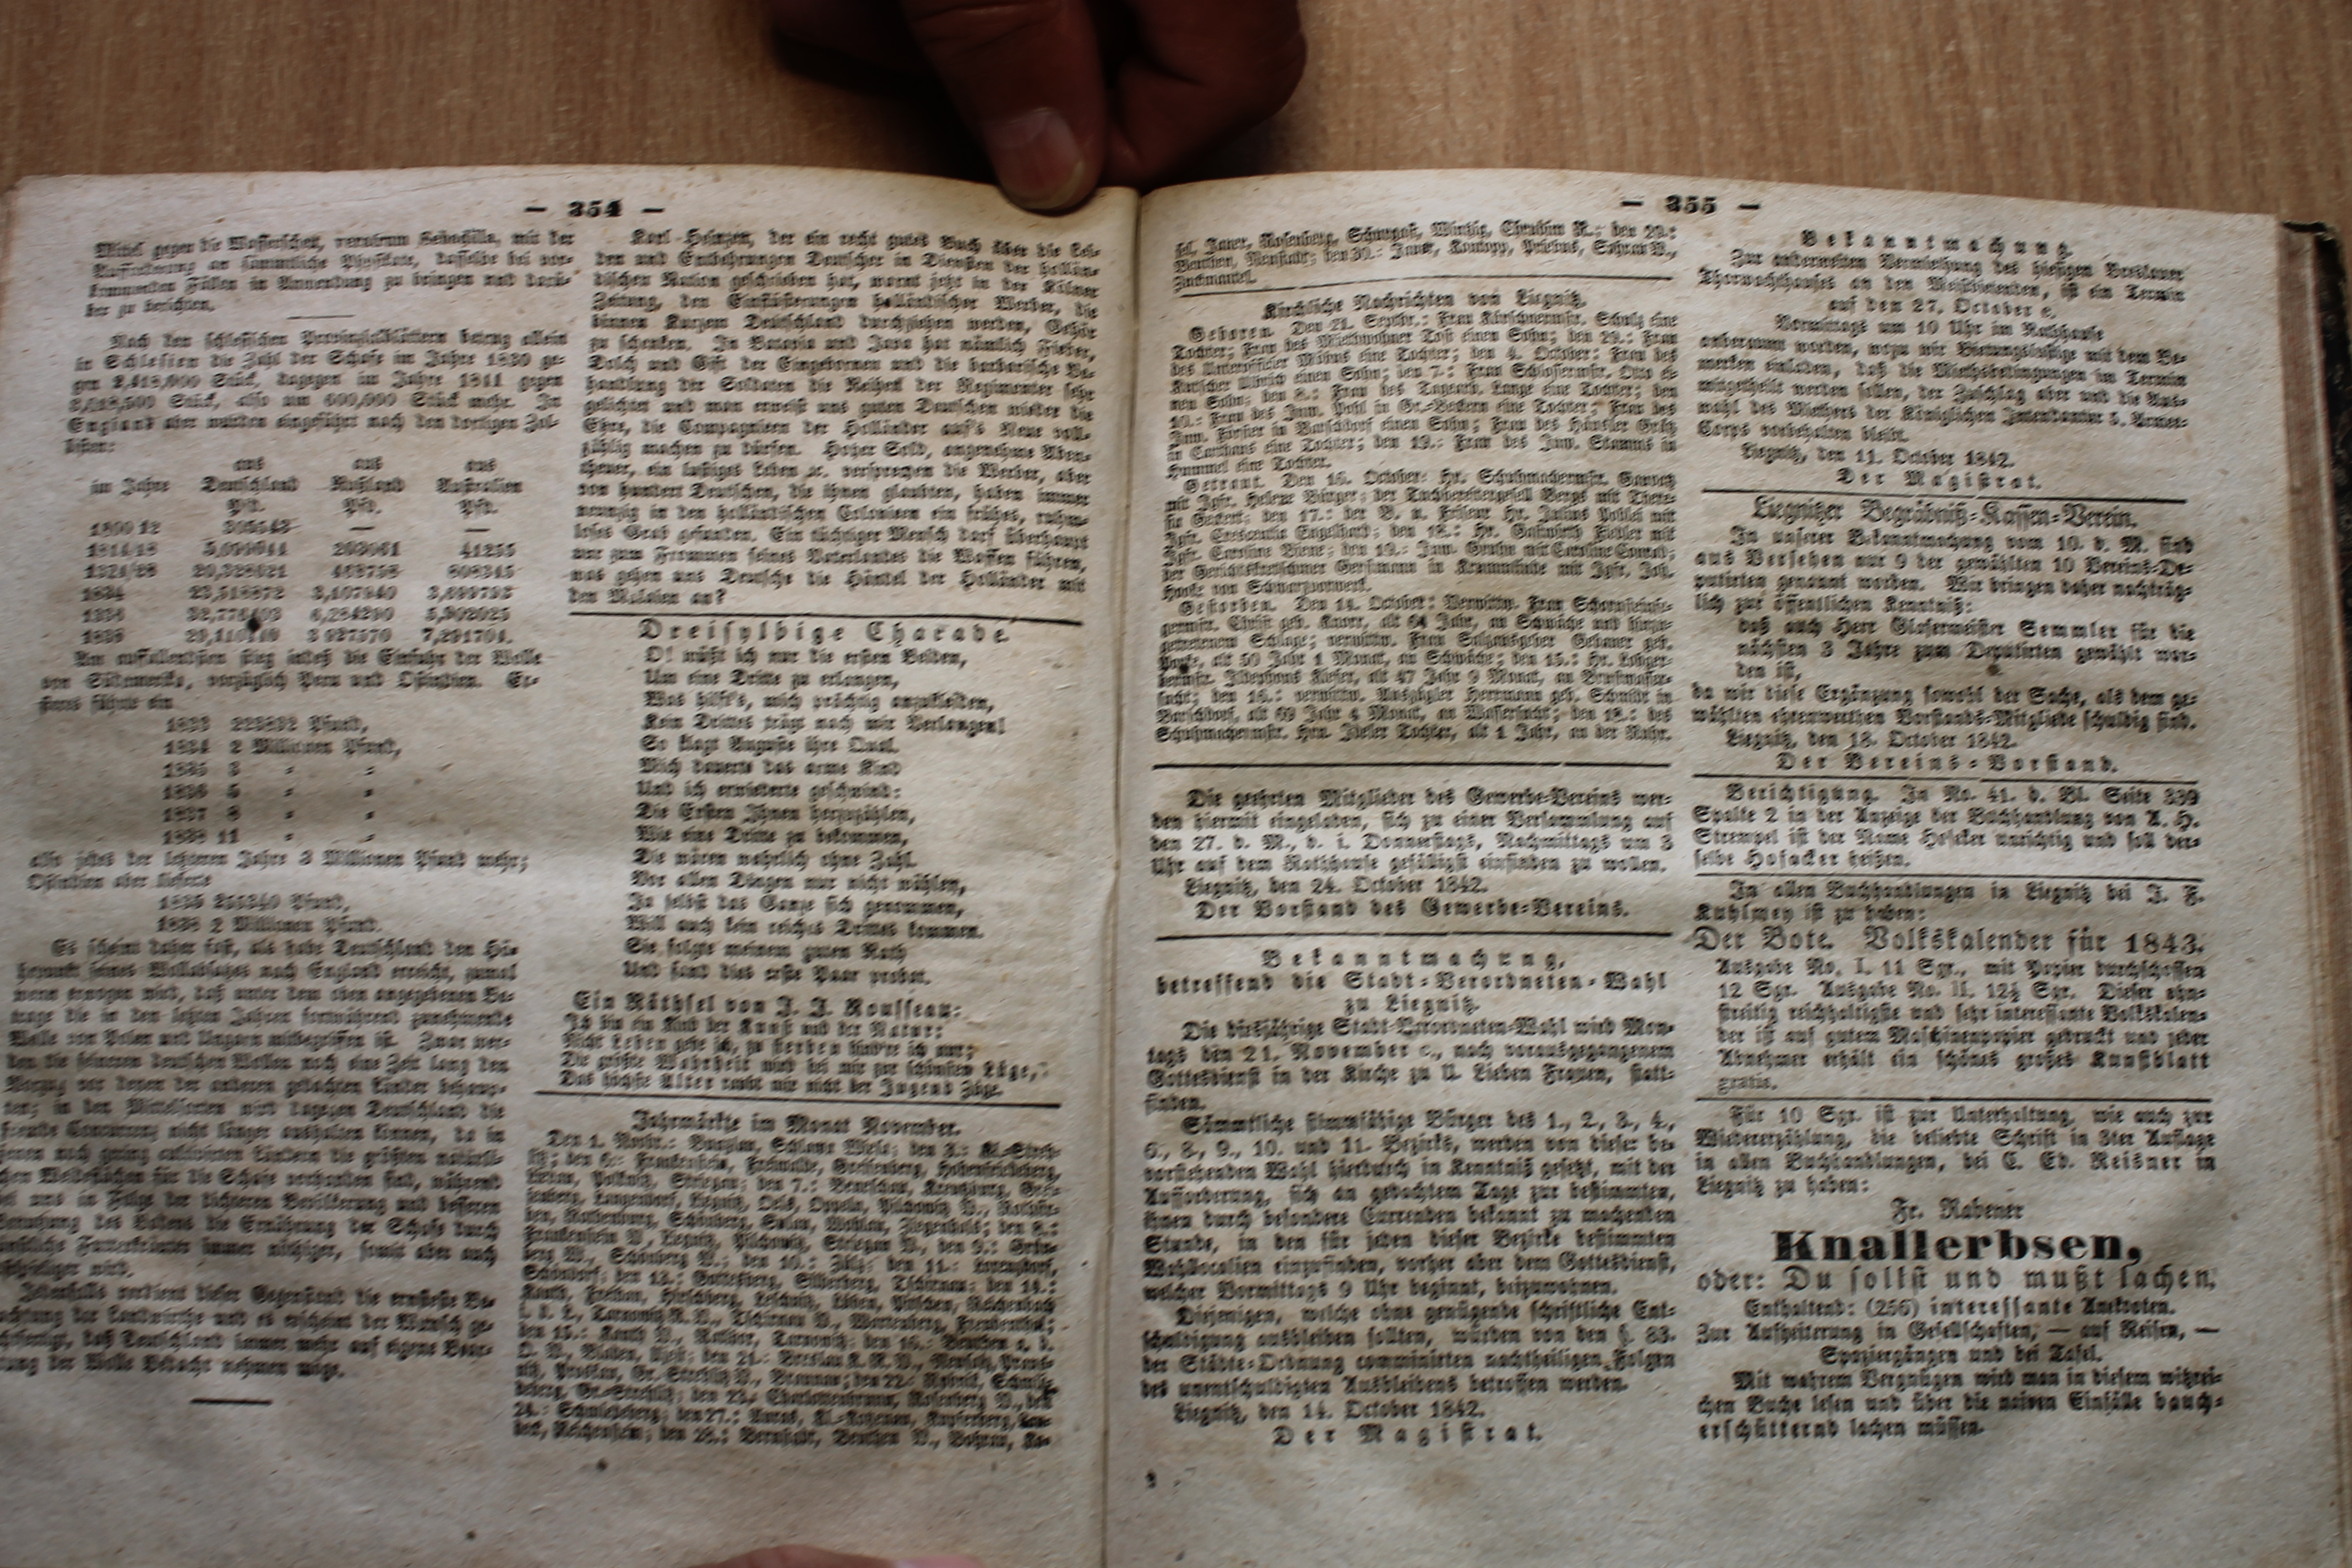 — 354 —
Mittel gegen die Wasserscheu, mit der
Aufforderung an sämmtliche Physikate, dasselbe bei vor-
kommenden Fällen in Anwendung zu bringen und darü-
ber zu berichten.
Nach den schlesischen Provinzialblättern betrug allein
in Schlesien die Zahl der Schafe im Jahre 1830 ge-
gen Stück, dagegen im Jahre 1841 gegen
Stück, also um 600,000 Stück mehr. In
England aber wurden eingeführt nach den dortigen Zol-
listen:
aus aus aus
im Jahre Deutschland Rußland Australien
Pfd. Pfd. Pfd.
Am auffallendsten stieg indeß die Einfuhr der Wolle
von Südamerika, vorzüglich Peru und Ostindien. Er-
steres führte ein
1833 Pfund,
1834 2 Millionen Pfund,
1835 3 = =
1836 = =
1837 8 = =
1838 11 = =
also jedes der letzteren Jahre 3 Millionen Pfund mehr;
Ostindien aber lieferte
Pfund,
1838 2 Millionen Pfund.
Es scheint daher fast, als habe Deutschland den Hö-
hepunkt seines Wollabsatzes nach England erreicht, zumal
wenn erwogen wird, daß unter dem oben angegebenen Be-
trage die in den letzten Jahren fortwährend zunehmende
Wolle von Polen und Ungarn mitbegriffen ist. Zwar wer-
den die feineren deutschen Wollen noch eine Zeit lang den
Vorzug vor denen der anderen gedachten Länder behaup-
ten; in den Mittelsorten wird dagegen Deutschland die
fremde Concurrenz nicht länger aushalten können, da in
jenen noch wenig cultivirten Ländern die größten natürli-
chen Weideflächen für die Schafe vorhanden sind, während
bei uns in Folge der dichteren Bevölkerung und besseren
Benutzung des Bodens die Ernährung der Schafe durch
künstliche Futterkräuter immer nöthiger, somit aber auch
kostspieliger wird.
Jedenfalls verdient dieser Gegenstand die ernsteste Be-
achtung der Landwirthe und es erscheint der Wunsch ge-
rechtfertigt, daß Deutschland immer mehr auf eigene Bear-
beitung der Wolle Bedacht nehmen möge.
Karl Heinzen, der ein recht gutes Buch über die Lei-
den und Entbehrungen Deutscher in Diensten der hollän-
dischen Nation geschrieben hat, warnt jetzt in der Kölner
Zeitung, den Einflüsterungen holländischer Werber, die
binnen Kurzem Deutschland durchziehen werden, Gehör
zu schenken. In Batavia und Java hat nämlich Fieber,
Dolch und Gift der Eingebornen und die barbarische Be-
handlung der Soldaten die Reihen der Regimenter sehr
gelichtet und man erweist uns guten Deutschen wieder die
Ehre, die Compagnieen der Holländer auf's Neue voll-
zählig machen zu dürfen. Hoher Sold, angenehme Aben-
theuer, ein lustiges Leben ꝛc. versprechen die Werber, aber
von hundert Deutschen, die ihnen glaubten, haben immer
neunzig in den holländischen Colonieen ein frühes, ruhm-
loses Grab gefunden. Ein tüchtiger Mensch darf überhaupt
nur zum Frommen seines Vaterlandes die Waffen führen,
was gehen uns Deutsche die Händel der Holländer mit
den Malaien an?
Dreisylbige Charade.
O! müßt ich nur die ersten Beiden,
Um eine Dritte zu erlangen,
Was hilft's, mich prächtig anzukleiden,
Kein Drittes trägt nach mir Verlangen!
So klagt Auguste ihre Qual.
Mich dauerte das arme Kind
Und ich erwiederte geschwind:
Die Ersten Ihnen herzuzählen,
Wie eine Dritte zu bekommen,
Die wären wahrlich ohne Zahl.
Vor allen Dingen nur nicht wählen,
Ja selbst das Ganze sich genommen,
Will auch kein reiches Drittes kommen.
Sie folgte meinem guten Rath
Und fand dies erste Paar probat.
Ein Räthsel von J. J. Rousseau:
Ich bin ein Kind der Kunst und der Natur:
Nicht Leben gebe ich, zu sterben hind're ich nur;
Die größte Wahrheit wird bei mir zur schönsten Lüge,
Das höchste Alter raubt mir nicht der Jugend Züge.
Jahrmärkte im Monat November.
Den 1. Novbr.: Bunzlau, Schlawa
den 6.: Frankenstein, Greifenberg, Hohenfriedeberg,
Polkwitz, Striegau; den 7.: Kreutzburg,
Liegnitz, Oels, Oppeln, Pilchowitz V.,
Rothenburg, Schömberg, Wohlau, Ziegenhals; den 8.:
Frankenstein V., Liegnitz, Pilchowitz, Striegau V., den 9.: Grün-
berg W., Schömberg V.; den 10.: Zülz; den 11.:
den 13.: Gottesberg, Silberberg, Tschirnau; den 14.:
Hirschberg, Leschnitz, Lüben, Pitschen, Reichenbach
Tarnowitz R. V., Tschirnau V., Wartenberg,
den 15.: Kanth V., Ratibor, Tarnowitz; den 16.: Beuthen a. d.
O. V., den 21.: Breslau
Gr. Strehlitz V., den 22.: Rybnik,
Gr. Strehlitz; den 23.: Charlottenbrunn, Rosenberg V., den
24.: den 27.: Auras, Kupferberg,
Reichenstein; den 28.: Bernstadt, Beuthen V.,
— 355 —
sel, Jauer, Rosenberg, Schurgast, Winzig, den 29.:
Beuthen, Neustadt; den 30.: Jauer, Kontopp, Priebus, Sohrau V.,
Zuckmantel.
Kirchliche Nachrichten von Liegnitz.
Geboren. Den 21. Septbr.: Frau Kürschnermstr. Schulz eine
Tochter; Frau des Miethwohner Tost einen Sohn; den 29.: Frau
des Unteroffizier Möbus eine Tochter; den 4. October: Frau des
Kutscher Ulbrich einen Sohn; den 7.: Frau Schlossermstr. Otto ei-
nen Sohn; den 8.: Frau des Tagearb. Lange eine Tochter; den
10.: Frau des Inw. Pohl in Gr.-Beckern eine Tochter; Frau des
Inw. Förster in Barschdorf einen Sohn; Frau des Häusler
in Carthaus eine Tochter; den 19.: Frau des Inw. Stamms in
Hummel eine Tochter.
Getraut. Den 16. October: Hr. Schuhmachermstr.
mit Jgfr. Helene Bürger; der Tuchbereitergesell Bergs mit There-
sia den 17.: der B. u. Friseur Hr. Julius mit
Jgfr. Crescentia Engelhard; den 18.: Hr. Gastwirth Fiebler mit
Jgfr. Caroline den 19.: Inw. mit Caroline Conrad;
der Gerichtskretschmer Gersmann in Krummlinde mit Jgfr. Joh.
von Schwarzvorwerk.
Gestorben. Den 14. October: Verwittw. Frau Schornsteinfe-
germstr. Christ geb. Knorr, alt 64 Jahr, an Schwäche und hinzu-
getretenem Schlage; verwittw. Frau Salzausgeber Gebauer geb.
alt 50 Jahr 1 Monat, an Schwäche; den 15.: Hr. Lohger-
bermstr. Ildephons Kieser, alt 47 Jahr 9 Monat, an Brustwasser-
sucht; den 16.: verwittw. Auszügler Herrmann geb. Schmidt in
Barschdorf, alt 69 Jahr 4 Monat, an Wassersucht; den 18.: des
Schuhmachermstr. Hrn. Tochter, alt 1 Jahr, an der Ruhr.
Die geehrten Mitglieder des Gewerbe-Vereins wer-
den hiermit eingeladen, sich zu einer Versammlung auf
den 27. d. M., d. i. Donnerstags, Nachmittags um 3
Uhr auf dem Rathhause gefälligst einfinden zu wollen.
Liegnitz, den 24. October 1842.
Der Vorstand des Gewerbe-Vereins.
Bekanntmachung,
betreffend die Stadt-Verordneten-Wahl
zu Liegnitz.
Die diesjährige Stadt-Verordneten-Wahl wird Mon-
tags den 21. November c., nach vorausgegangenem
Gottesdienst in der Kirche zu U. Lieben Frauen, statt-
finden.
Sämmtliche stimmfähige Bürger des 1., 2., 3., 4.,
6., 8., 9., 10. und 11. Bezirks, werden von dieser be-
vorstehenden Wahl hierdurch in Kenntniß gesetzt, mit der
Aufforderung, sich an gedachtem Tage zur bestimmten,
ihnen durch besondere Currenden bekannt zu machenden
Stunde, in den für jeden dieser Bezirke bestimmten
Wahllocalien einzufinden, vorher aber dem Gottesdienst,
welcher Vormittags 9 Uhr beginnt, beizuwohnen.
Diejenigen, welche ohne genügende schriftliche Ent-
schuldigung ausbleiben sollten, würden von den §. 83.
der Städte-Ordnung comminirten nachtheiligen Folgen
des unentschuldigten Ausbleibens betroffen werden.
Liegnitz, den 14. October 1842.
Der Magistrat.
Bekanntmachung.
Zur anderweiten Vermiethung des hiesigen Breslauer
Thorwachthauses an den Meistbietenden, ist ein Termin
auf den 27. October c.
Vormittags um 10 Uhr im Rathhause
anberaumt worden, wozu wir Bietungslustige mit dem Be-
merken einladen, daß die Miethsbedingungen im Termin
mitgetheilt werden sollen, der Zuschlag aber und die Aus-
wahl des Miethers der Königlichen Intendantur 5. Armee-
Corps vorbehalten bleibt.
Liegnitz, den 11. October 1842.
Der Magistrat.
Liegnitzer Begräbniß-Kassen-Verein.
In unserer Bekanntmachung vom 10. d. M. sind
aus Versehen nur 9 der gewählten 10 Vereins-De-
putirten genannt worden. Wir bringen daher nachträg-
lich zur öffentlichen Kenntniß:
daß auch Herr Glasermeister Semmler für die
nächsten 3 Jahre zum Deputirten gewählt wor-
den ist,
da wir diese Ergänzung sowohl der Sache, als dem ge-
wählten ehrenwerthen Vorstands-Mitgliede schuldig sind.
Liegnitz, den 18. October 1842.
Der Vereins-Vorstand.
Berichtigung. In No. 41. d. Bl. Seite 339
Spalte 2 in der Anzeige der Buchhandlung von A. H.
Strempel ist der Name Hofcker unrichtig und soll der-
selbe Hofacker heißen.
In allen Buchhandlungen in Liegnitz bei J. F.
Kuhlmey ist zu haben:
Der Bote. Volkskalender für 1843.
Ausgabe No. I. 11 Sgr., mit Papier durchschossen
12 Sgr. Ausgabe No. II. 12½ Sgr. Dieser ohn-
streitig reichhaltigste und sehr interessante Volkskalen-
der ist auf gutem Maschinenpapier gedruckt und jeder
Abnehmer erhält ein schönes großes Kunstblatt
gratis.
Für 10 Sgr. ist zur Unterhaltung, wie auch zur
Wiedererzählung, die beliebte Schrift in 3ter Auflage
in allen Buchhandlungen, bei C. Ed. Reisner in
Liegnitz zu haben:
Fr. Rabener
Knallerbsen,
oder: Du sollst und mußt lachen.
Enthaltend: (256) interessante Anekdoten.
Zur Aufheiterung in Gesellschaften, — auf Reisen, —
Spaziergängen und bei Tafel.
Mit wahrem Vergnügen wird man in diesem witzrei-
chen Buche lesen und über die naiven Einfälle bauch-
erschütternd lachen müssen.